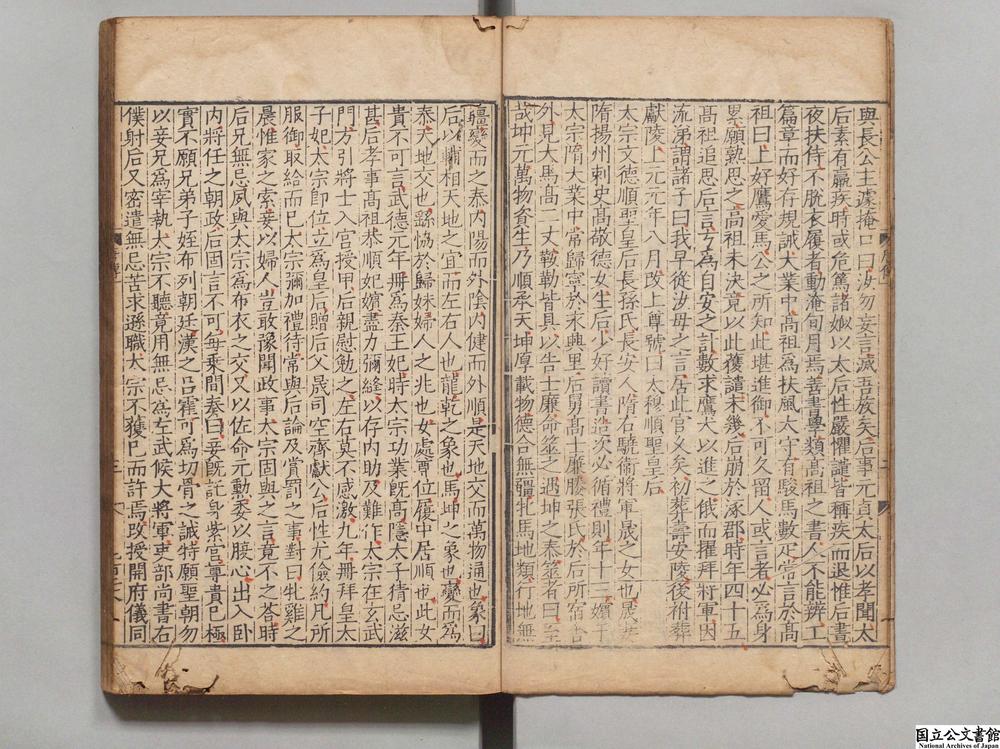 與長公主遽掩口曰汝勿妄言滅吾族矣后事元貞太后以孝聞太
后素有羸疾時或危篤諸姒以太后性嚴懼譴皆稱疾而退惟后晝
夜扶侍不脫衣履者動淹旬月焉善書學類高祖之書人不能辨工
篇章而好存規誡大業中高祖為扶風太守有駿馬數疋常言於高
祖曰上好鷹愛馬公之所知此堪進御不可久留人或言者必為身
累願熟思之高祖未決竟以此獲譴未幾后崩於涿郡時年四十五
高祖追思后言方為自安之計數求鷹犬以進之俄而擢拜將軍因
流涕謂諸子曰我早從汝母之言居此官乆矣初葬壽安陵後祔葬
獻陵上元元年八月改上尊號曰太穆順聖皇后
太宗文德順聖皇后長孫氏長安人隋右驍衛將軍晟之女也晟妻
隋揚州刺史高敬德女生后少好讀書造次必循禮則年十三嬪于
太宗隋大業中常歸寧於永興里后舅高士廉媵張氏於后所宿舍
外見大馬高二丈鞍勒皆具以告士廉命筮之遇坤之泰筮者曰至
哉坤元萬物資生乃順承天坤厚載物德合無疆牝馬地類行地無
疆變而之泰內陽而外陰內健而外順是天地交而萬物通也象曰
后以輔相天地之宜而左右人也龍乾之象也馬坤之象也變而為
泰天地交也繇恊於歸妹婦人之兆也女處尊位履中居順也此女
貴不可言武德元年冊為秦王妃時太宗功業旣高隱太子猜忌滋
甚后孝事高祖恭順妃嬪盡力彌縫以存內助及難作太宗在玄武
門方引將士入宮授甲后親慰勉之左右莫不感激九年冊拜皇太
子妃太宗卽位立為皇后贈后父晟司空齊獻公后性尤儉約凡所
服御取給而已太宗彌加禮待常與后論及賞罰之事對曰牝雞之
晨惟家之索妾以婦人豈敢豫聞政事太宗固與之言竟不之荅時
后兄無忌夙與太宗為布衣之交又以佐命元勳委以腹心出入臥
內將任之朝政后固言不可每乘間奏曰妾旣託身紫宮尊貴已極
實不願兄弟子姪布列朝廷漢之呂霍可為切骨之誡特願聖朝勿
以妾兄為宰執太宗不聽竟用無忌為左武候大將軍吏部尚書右
僕射后又密遣無忌苦求遜職太宗不獲已而許焉改授開府儀同
国立公文書館
National Archives of Japan